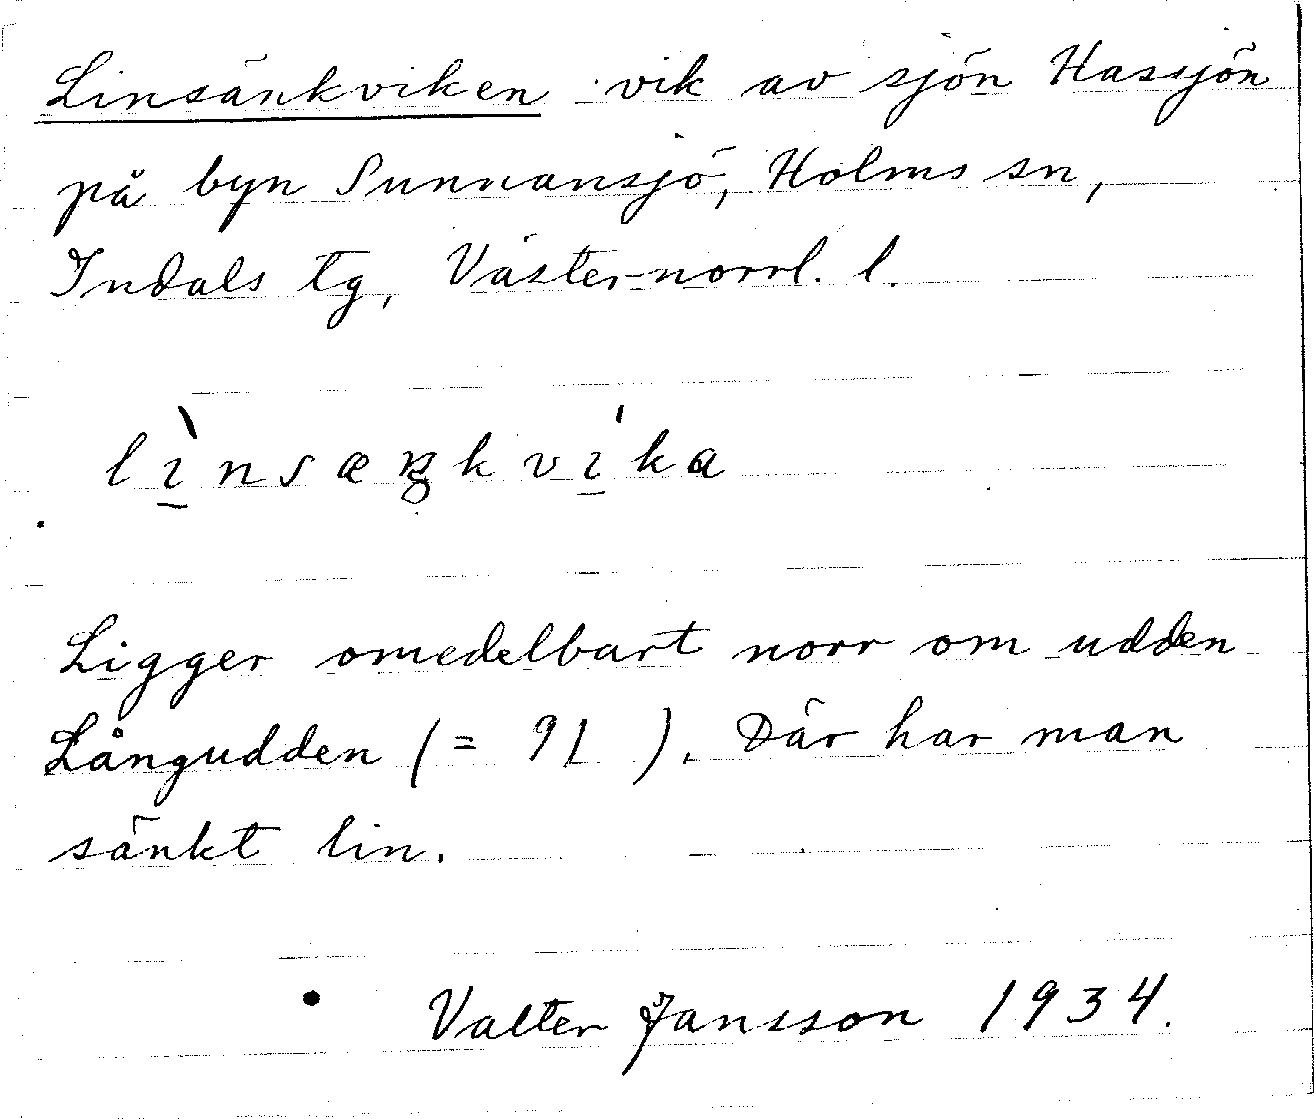 Linsänkviken vik av sjön Hassjön
på byn Sunnansjö, Holms sn,
Indals tg, Västernorrl. l.
lı̱̀nsæŋkvı̱́ka
Ligger omedelbart norr om udden
Långudden (= 91 ). Där har man
sänkt lin.
Valter Jansson 1934.